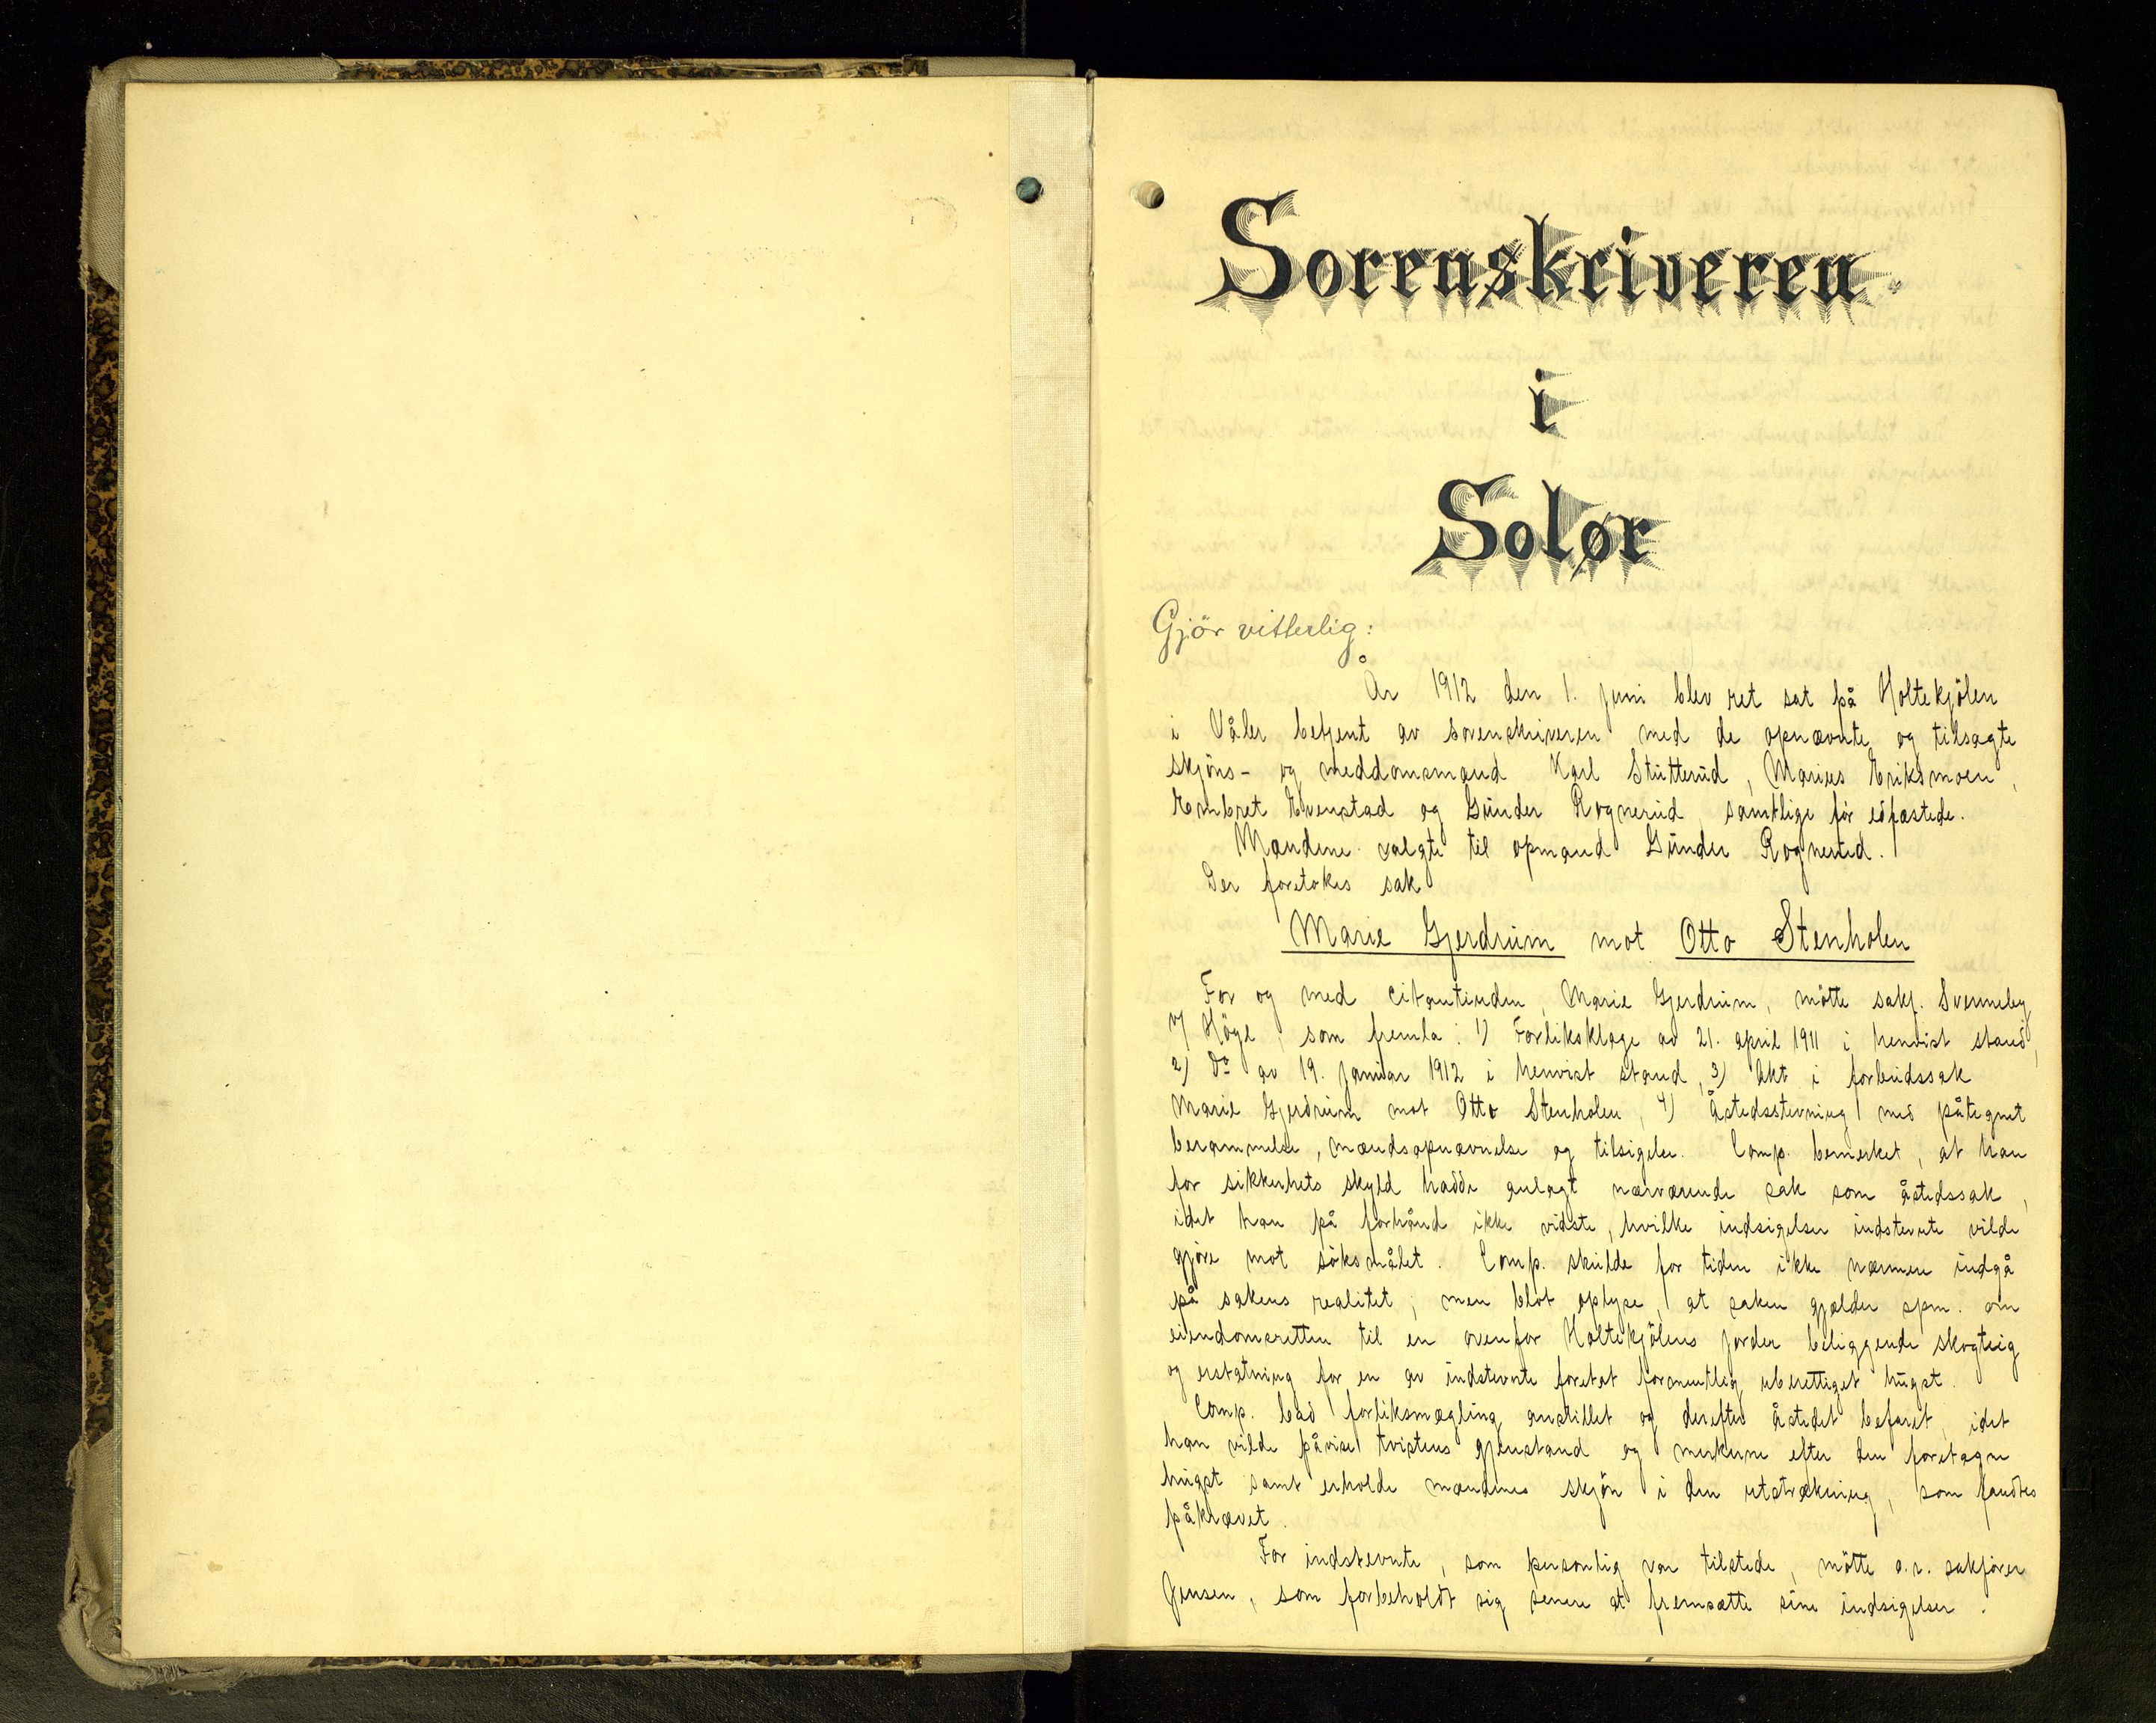 Sorenskriveren
i
Solør
Gjör vitterlig:
År 1912 den 1. juni blev ret sat på Holtekjölen
i Våler betjent av sorenskriveren med de opnævnte og tilsagte
skjöns- og meddomsmænd Karl Stutterud, Marius Eriksmoen,
Embret Evenstad og Gunder Rognerud, samtlige för edfæstede.
Mændene valgte til opmand Gunder Rognerud.
Der foretokes sak
Marie Gjerdrum mot Otto Stenholen
For og med citantinden, Marie Gjerdrum, mötte sakf. Svenneby
v/ Höye, som fremla: 1) Forliksklage av 21. april 1911 i henvist stand,
2) Do av 19. januar 1912 i henvist stand, 3) Akt i forbudssak
Marie Gjerdrum mot Otto Stenholen, 4) Åstedsstevning med påtegnet
berammelse, mændsopnævnelse og tilsigelse. Comp. bemerket, at han
for sikkerhets skyld hadde anlagt nærværende sak som åstedssak,
idet han på forhånd ikke vidste, hvilke indsigelser indstevnte vilde
gjöre mot söksmålet. Comp. skulde for tiden ikke nærmere indgå
på sakens realitet; men blot oplyse, at saken gjælder spm. om
eiendomsretten til en ovenfor Holtekjölens jorder beliggende skogteig
og erstatning for en av indstevnte foretat formentlig uberettiget hugst.
Comp. bad forliksmægling anstillet og derefter åstedet befaret, idet
han vilde påvise tvistens gjenstand og merkerne efter den foretagne
hugst samt erholde mændenes skjön i den utstrækning, som fandtes
påkrævet.
For indstevnte, som personlig var tilstede, mötte o.r. sakförer
Jensen, som forbeholdt sig senere at fremsætte sine indsigelser.